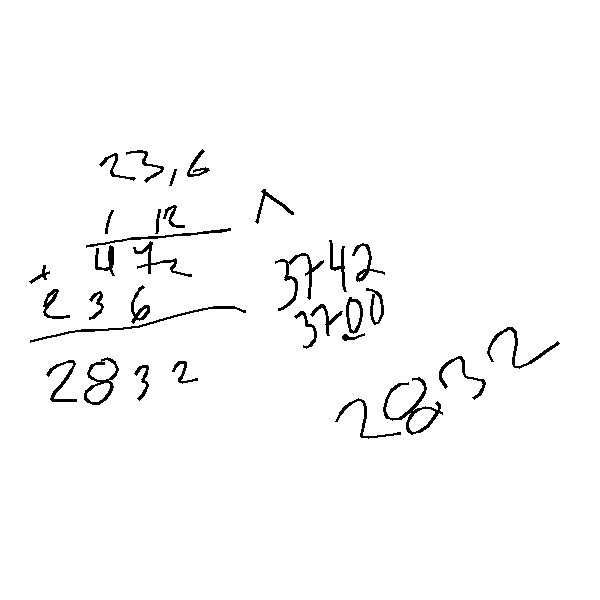 23,6
1 12
472
+ 236
2832
3742
3700
2832